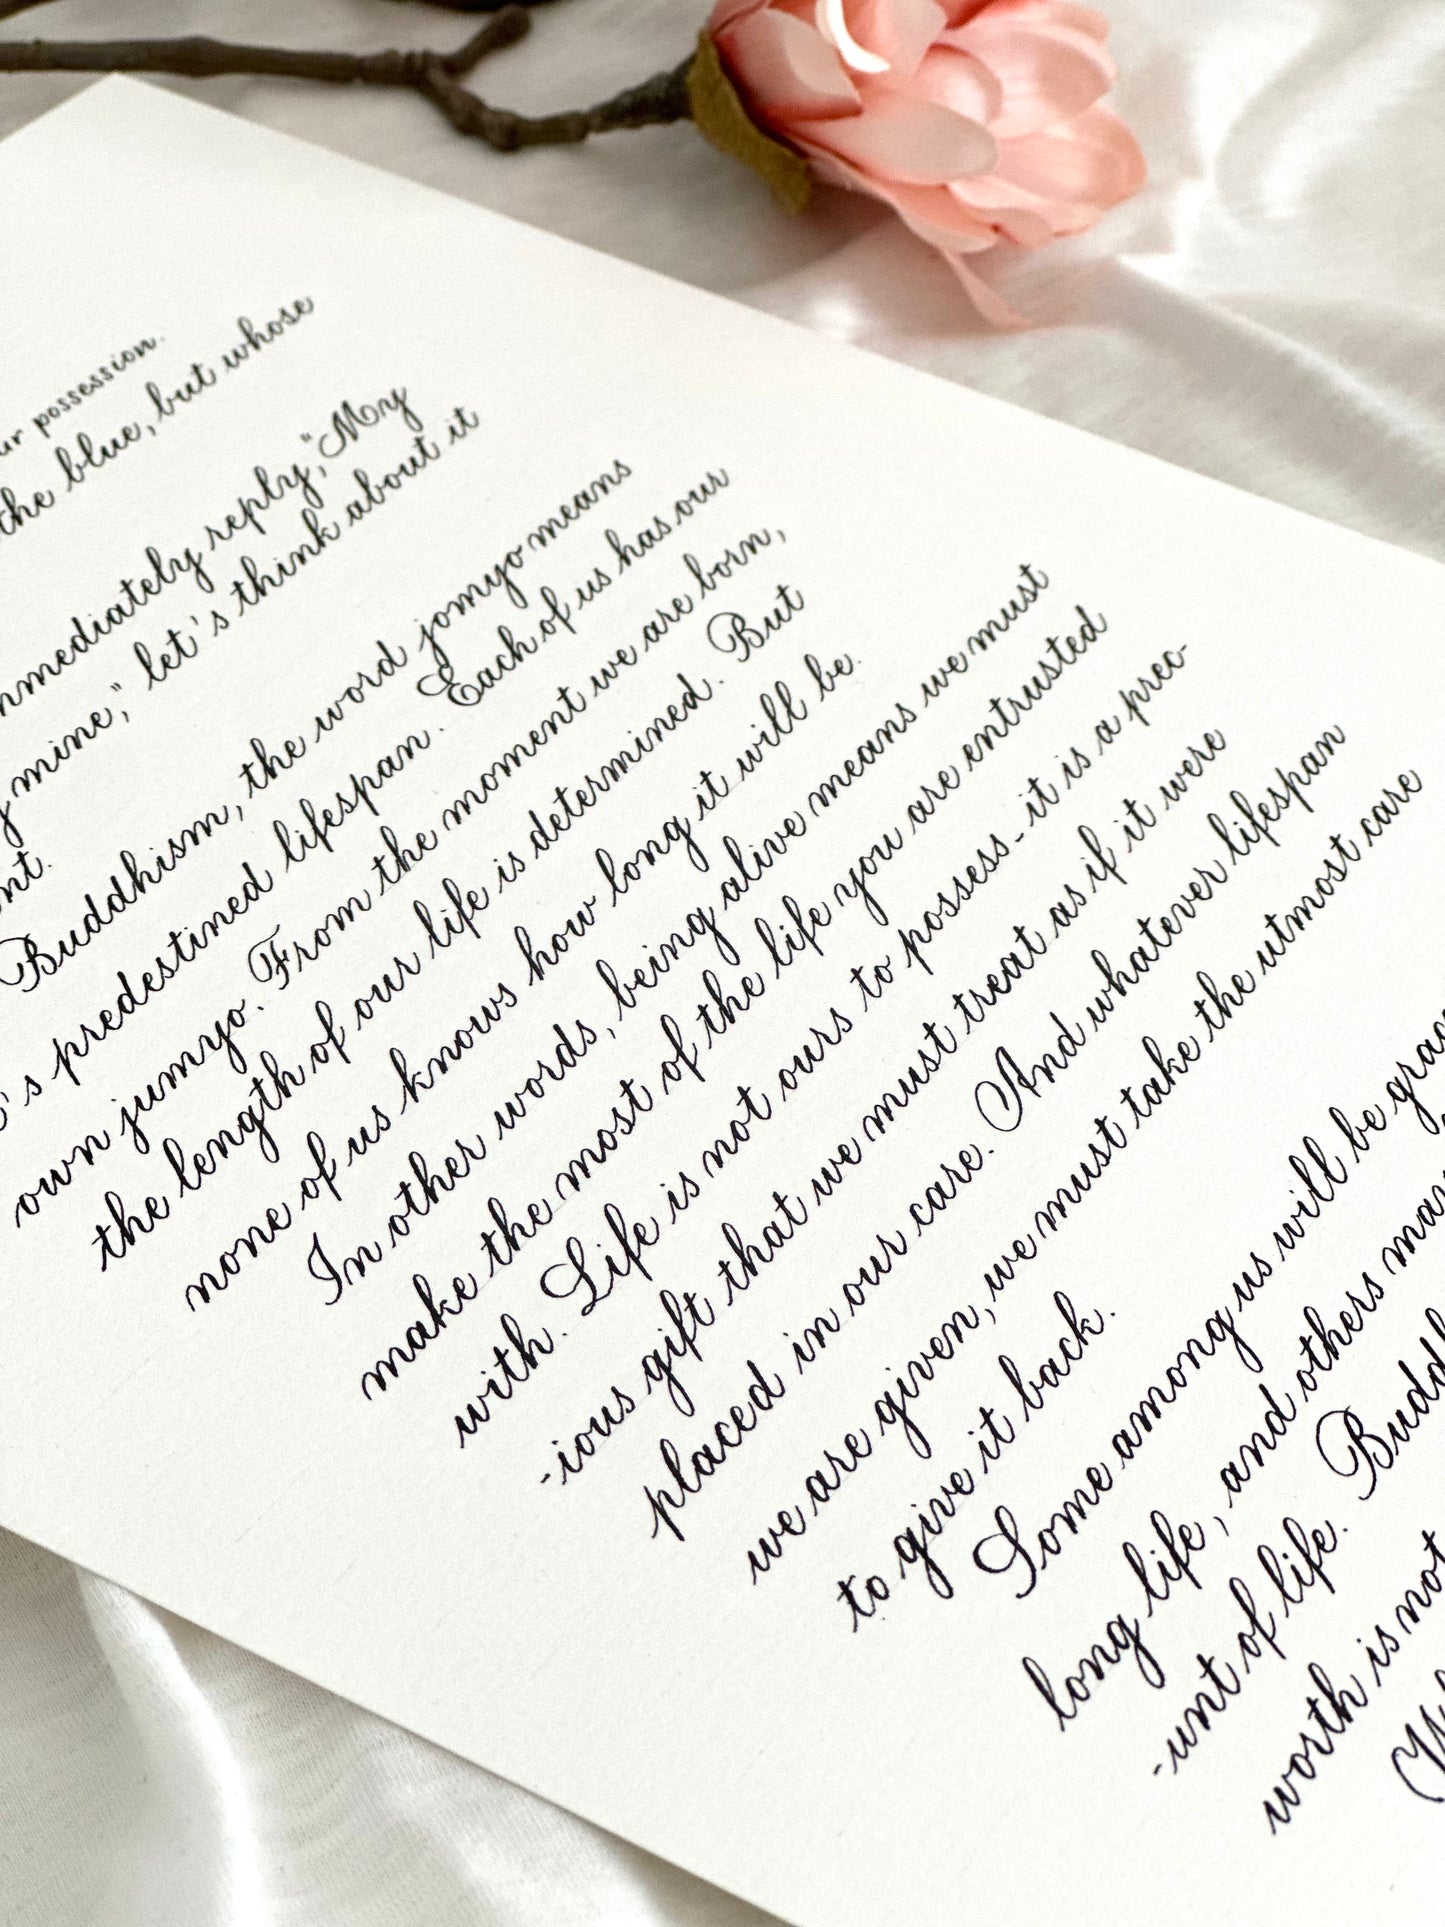 possession.
the blue, but whose
reply, "My
mine," let's think about it
Buddhism, the word jomyo means
's predestined lifespan. Each of us has our
own jumyo. From the moment we are born,
the length of our life is determined. But
none of us knows how long it will be.
In other words, being alive means we must
make the most of the life you are entrusted
with. Life is not ours to possess-it is a prec-
-ious gift that we must treat as if it were
placed in our care. And whatever lifespan
we are given, we must take the utmost care
to give it back.
Some among us will be
long life, and others
-unt of life.
worth is not